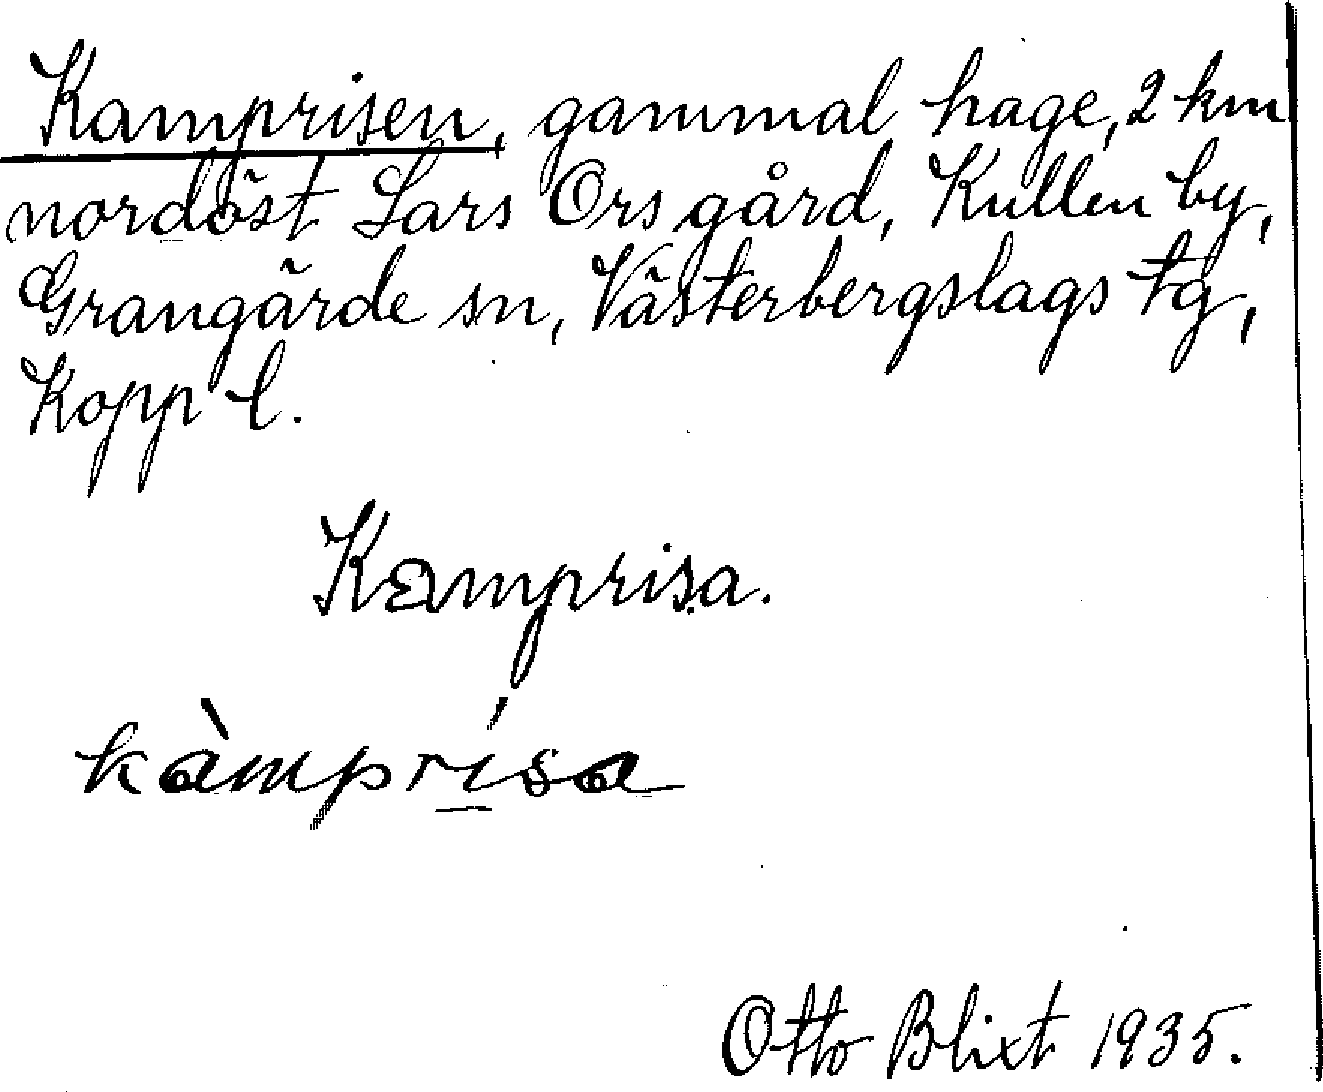 Kamprisen, gammal hage, 2 km
nordöst Lars Ors gård, Kullen by,
Grangärde sn, Västerbergslags tg,
Kopp l.
Kamprisa.
kàmprísa
Otto Blixt 1935.